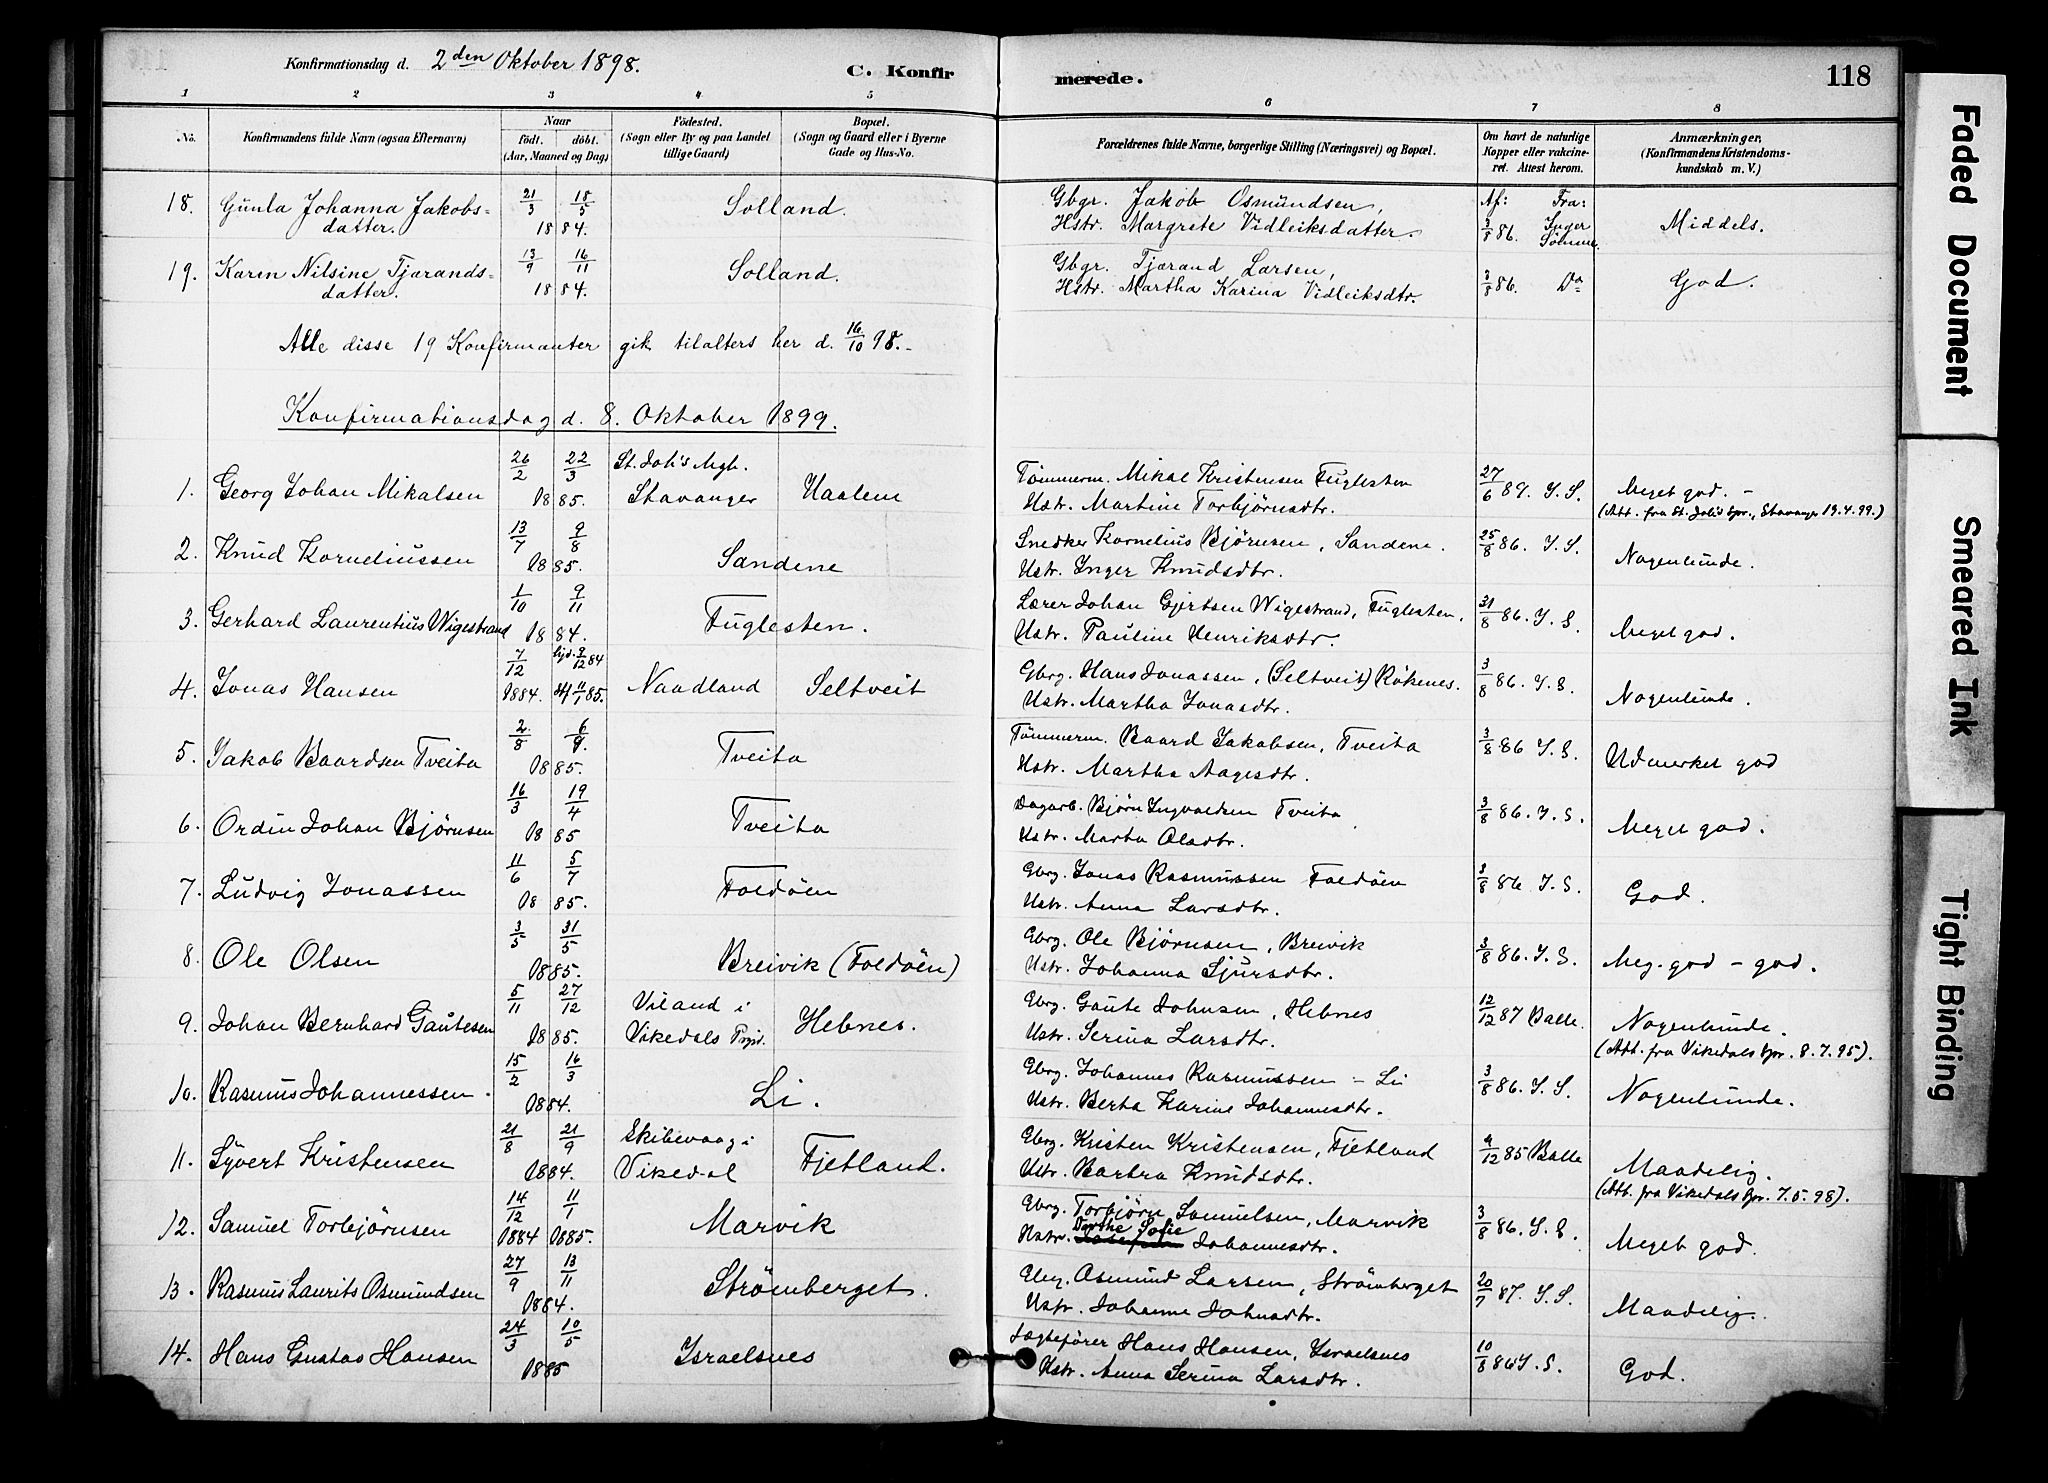 Konfirmationsdag d. 2den Oktober 1898.
C. Konfirmerede.
118
1 2 3 4 5 6 7 8
No.
Konfirmandens fulde Navn (ogsaa Efternavn)
Naar
födt. döbt.
(Aar, Maaned og Dag)
Födested.
(Sogn eller By og paa Landet
tillige Gaard)
Bopæl.
(Sogn og Gaard eller i Byerne
Gade og Hus-No.
Forældrenes fulde Navne, borgerlige Stilling (Næringsvei) og Bopæl.
Om havt de naturlige
Kopper eller vakcine-
ret. Attest herom.
Anmærkninger,
(Konfirmandens Kristendoms-
kundskab m. V.)
18. Gunla Johanna Jakobs= 21/3 18/5 Solland. Gbgr. Jakob Osmundsen, Af: Fra:
datter. 1884. Hstr. Margrete Vidleiksdatter. 3/8 86. Inger Sömme. Middels.
19. Karen Nilsine Tjærands= 13/9 16/11 Solland. Gbgr. Tjærand Larsen,
datter. 1884. Hstr. Martha Karina Vidleiksdtr. 3/8 86. Do God.
Alle disse 19 Konfirmanter gik tilalters her d. 16/10 98.-
Konfirmationsdag d. 8. Oktober 1899.
26/2 22/3 St. Joh's Mgh. Tömmerm. Mikal Kristensen Fuglesten 27/6 89. I. S. Meget god. -
1. Georg Johan Mikalsen 1885. Stavanger Haalem Hstr. Martine Torbjörnsdtr. (Att. fra St. Joh's Spr., Stavanger 19.4.99.)
13/7 9/8 Snedker Kornelius Björnsen, Sandene. 25/8 86. I. S.
2. Knud Korneliussen 1885. Sandene Hstr. Inger Knudsdtr. Nogenlunde.
1/10 9/11 Lærer Johan Gjertsen Wigestrand, Fuglesten, 31/8 86. I. S.
3. Gerhard Laurentius Wigestrand 1884. Fuglesten. Hstr. Pauline Henriksdtr. Meget god.
7/12 hjd. 9/12 84 Gbrg. Hans Jonassen, (Seltveit) Rökenes. 3/8 86. I. S.
4. Jonas Hansen 1884. 11/1 85. Naadland Seltveit Hstr. Martha Jonasdtr. Nogenlunde.
2/8 6/9. Tömmerm. Baard Jakobsen, Tveita 3/8 86 I. S.
5. Jakob Baardsen Tveita 1885. Tveita Hstr. Martha Aagesdtr. Udmerket god
16/3 19/4 Dagarb. Björn Ingvaldsen Tveita 3/8 86. I. S.
6. Ordin Johan Björnsen 1885 Tveita Hstr. Marta Olsdtr. Meget god.
11/6 5/7 Gbrg. Jonas Rasmussen Foldöen 3/8 86. I. S.
7. Ludvig Jonassen 1885. Foldöen Hstr. Anna Larsdtr. God.
3/5 31/5 Gbrg. Ole Björnsen, Breivik 3/8 86. I. S.
8. Ole Olsen 1885. Breivik (Foldöen) Hstr. Johanna Sjursdtr. Meg. god - god.
5/11 27/12 Viland i Gbrg. Gaute Johnsen, Hebnes 12/12 87 Balle. Nogenlunde.
9. Johan Bernhard Gautesen 1885. Vikedals Prgd. Hebnes. Hstr. Serina Larsdtr. (Att. fra Vikedals Spr. 8.7.95).
15/2 16/3 Gbrg. Johannes Rasmussen - Li 3/8 86. I. S.
10. Rasmus Johannessen. 1884. Li. Hstr. Berta Karine Johannesdtr. Nogenlunde.
21/8 21/9 Skibevaag i Gbrg. Kristen Kristensen, Fjetland 4/12 85 Balle Maadelig.
11. Syvert Kristensen 1884. Vikedal Fjetland. Hstr. Barbra Knudsdtr. (Att. fra Vikedals Spr. 7.5.98).
14/12 11/1 Gbrg. Torbjörn Samuelsen, Marvik 3/8 86. I. S.
12. Samuel Torbjörnsen 1884 1885. Marvik Hstr. Dorthe Sofie Johannesdtr. Meget god.
27/9 13/11 Gbrg. Osmund Larsen, Strömberget 20/7 87. I. S.
13. Rasmus Laurits Osmundsen 1884. Strömberget. Hstr. Johanne Johnsdtr. Maadelig.
24/3 10/5 Jægtefører Hans Hansen, Israelsnes 10/8 86 I. S.
14. Hans Gustav Hansen 1885 Israelsnes Hstr. Anna Serina Larsdtr. God.
Faded Document
Smeared Ink
Tight Binding